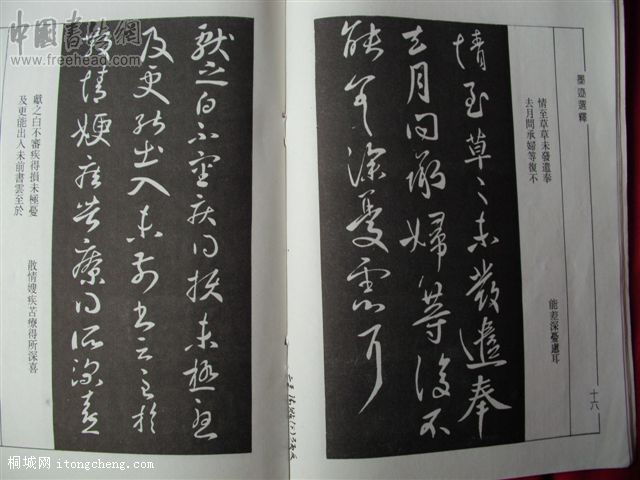 墨迹選釋
情至草草未發遣奉
去月問承婦等復不
能差深憂慮耳
十六
情至草草未發遣奉
去月問承婦等復不
能差深憂慮耳
獻之白不審疾得損未極憂
及更能出入未前書云至於
散情嫂疾苦療得所深喜
獻之白不審疾得損未極憂
及更能出入未前書雲至於
散情嫂疾苦療得所深喜
中國書法網
www.freehead.com
桐城网 itongcheng.com